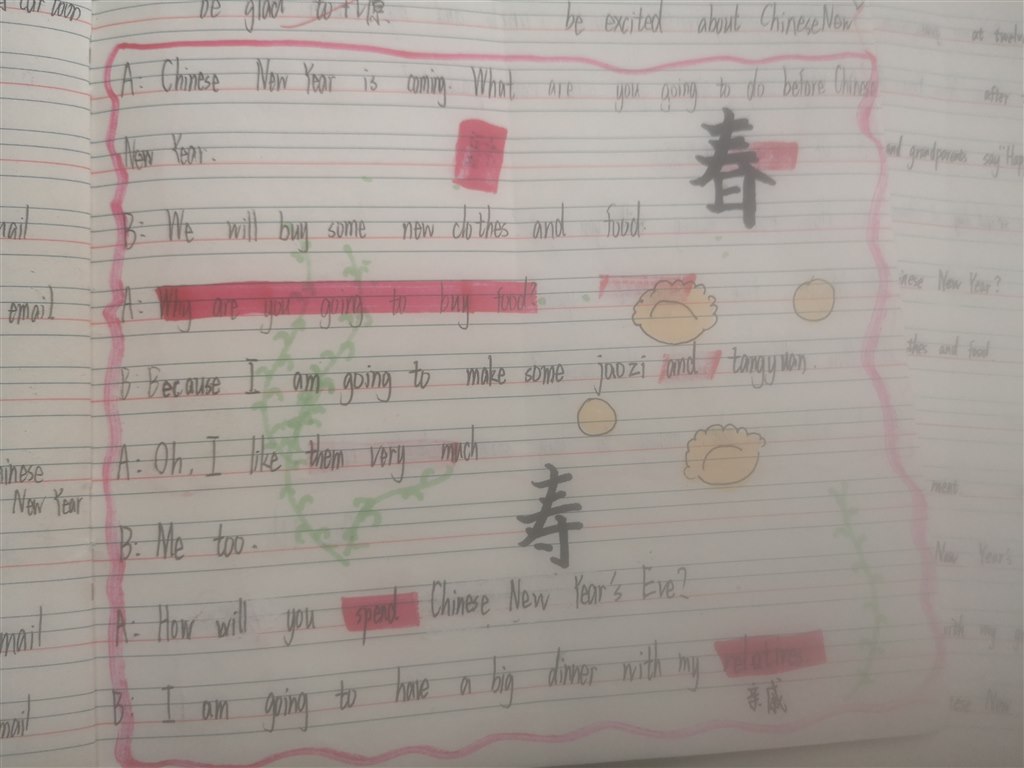 be glad to
be excited about Chinese New
A: Chinese New Year is coming. What are you going to do before Chinese
New Year.
春
B: We will buy some new clothes and food.
A: Why are you going to buy food?
B: Because I am going to make some jaozi and tangywan.
A: Oh, I like them very much
寿
B: Me too.
A: How will you spend Chinese New Year's Eve?
B: I am going to have a big dinner with my relatives
亲戚
mail
email
hinese
New Year
mail
mail
at twelve
after
and grandparents say "Hap
inese New Year?
thes and food
ment
New Year's
with my